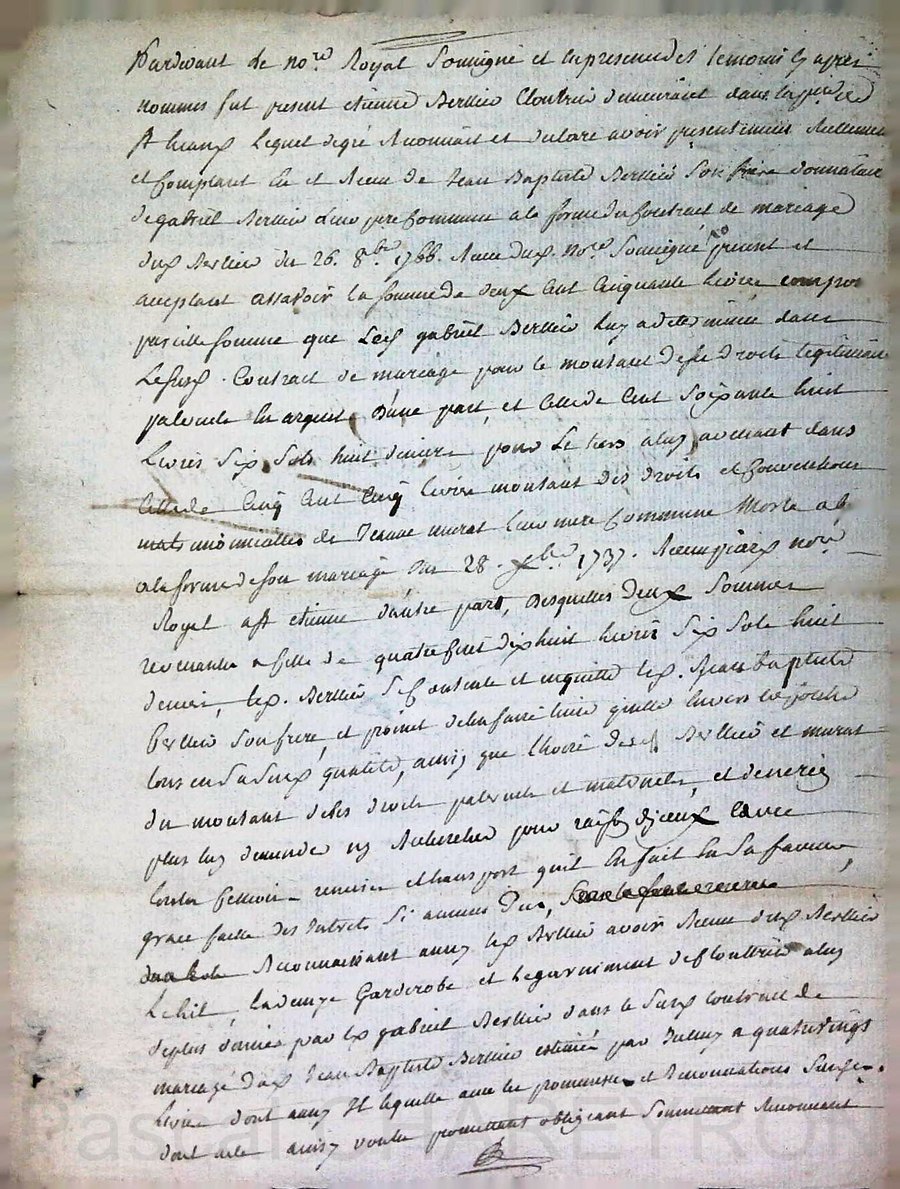 Pardevant le no.re Royal Soussigné et en presence des temoins cy apres
nommes fut present etienne Berllier Cloutrier demeurant dans la p.sse de
St jeanx lequel de gré Reconnait et declare avoir presentement Reellement
et Comptant eu et Receu de Jean Baptiste Berllier Son frere donnataire
de gabriel Berllier Leur pere Commun a la forme du Contract de mariage
dux Berllier du 26. 8.bre 1766. Receu dux. no.re Soussigné present et
acceptant assavoir la Somme de deux Cent Cinquante livres Comptant
pareille Somme que Led gabriel Berllier luy a determinée dans
Lesusx. Contract de mariage pour le montant de Ses droits legitimaires
paternels en argent D'une part, et Celle de Cent Soixante huit
Livres Six Sols huit deniers pour Le tiers a luy avenant dans
Celle de Cinq Cent Cinq livres montant des droits et Conventions
matrimonialles de Jeanne murat Leur mere Commune Morte
a la forme de Son mariage du 28. 1737. Receu no.re
Royal a St etienne d'autre part, Desquelles deux Sommes
revenantes a Celle de quatre Cent dix huit livres Six Sols huit
deniers, lex. Berllier Se Contente et en quitte lex. Jean baptiste
Berllier Son frere, et promet de l'en faire tenir quitte envers
tous en Sa Susx qualité, ainsy que l'hoirie des d Berllier et murat
du montant de Ses droits paternels et maternels, et de n'en
plus luy demander ny Rechercher pour raison d'jceux
toutte petition remise et transport qu'il en fait en Sa faveur,
grace faitte des Interets Si aucuns Dus,
Reconnaissant aussy lex Berllier avoir Receu dux Berllier
Le lit, garderobe et Le garniment de Cloutrier a luy
de plus donnés par lex gabriel Berllier dans le Susx Contract de
mariage dux Jean Baptiste Berllier estimés par Jceluy a quatrevingts
livres dont aussy Il le quitte avec les promesses et Renonciations Susx.
dont acte ainsy voulu promettant obligeant Soumettant Renonceant
Pascal CHAREYRON